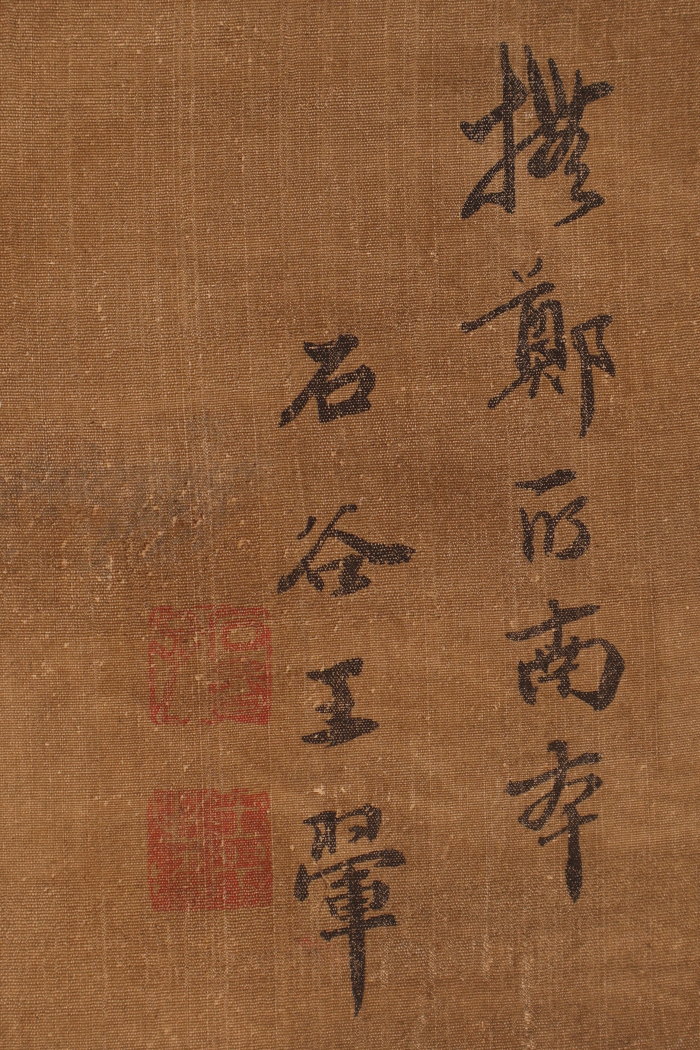 撫鄭所南本
石谷王翬